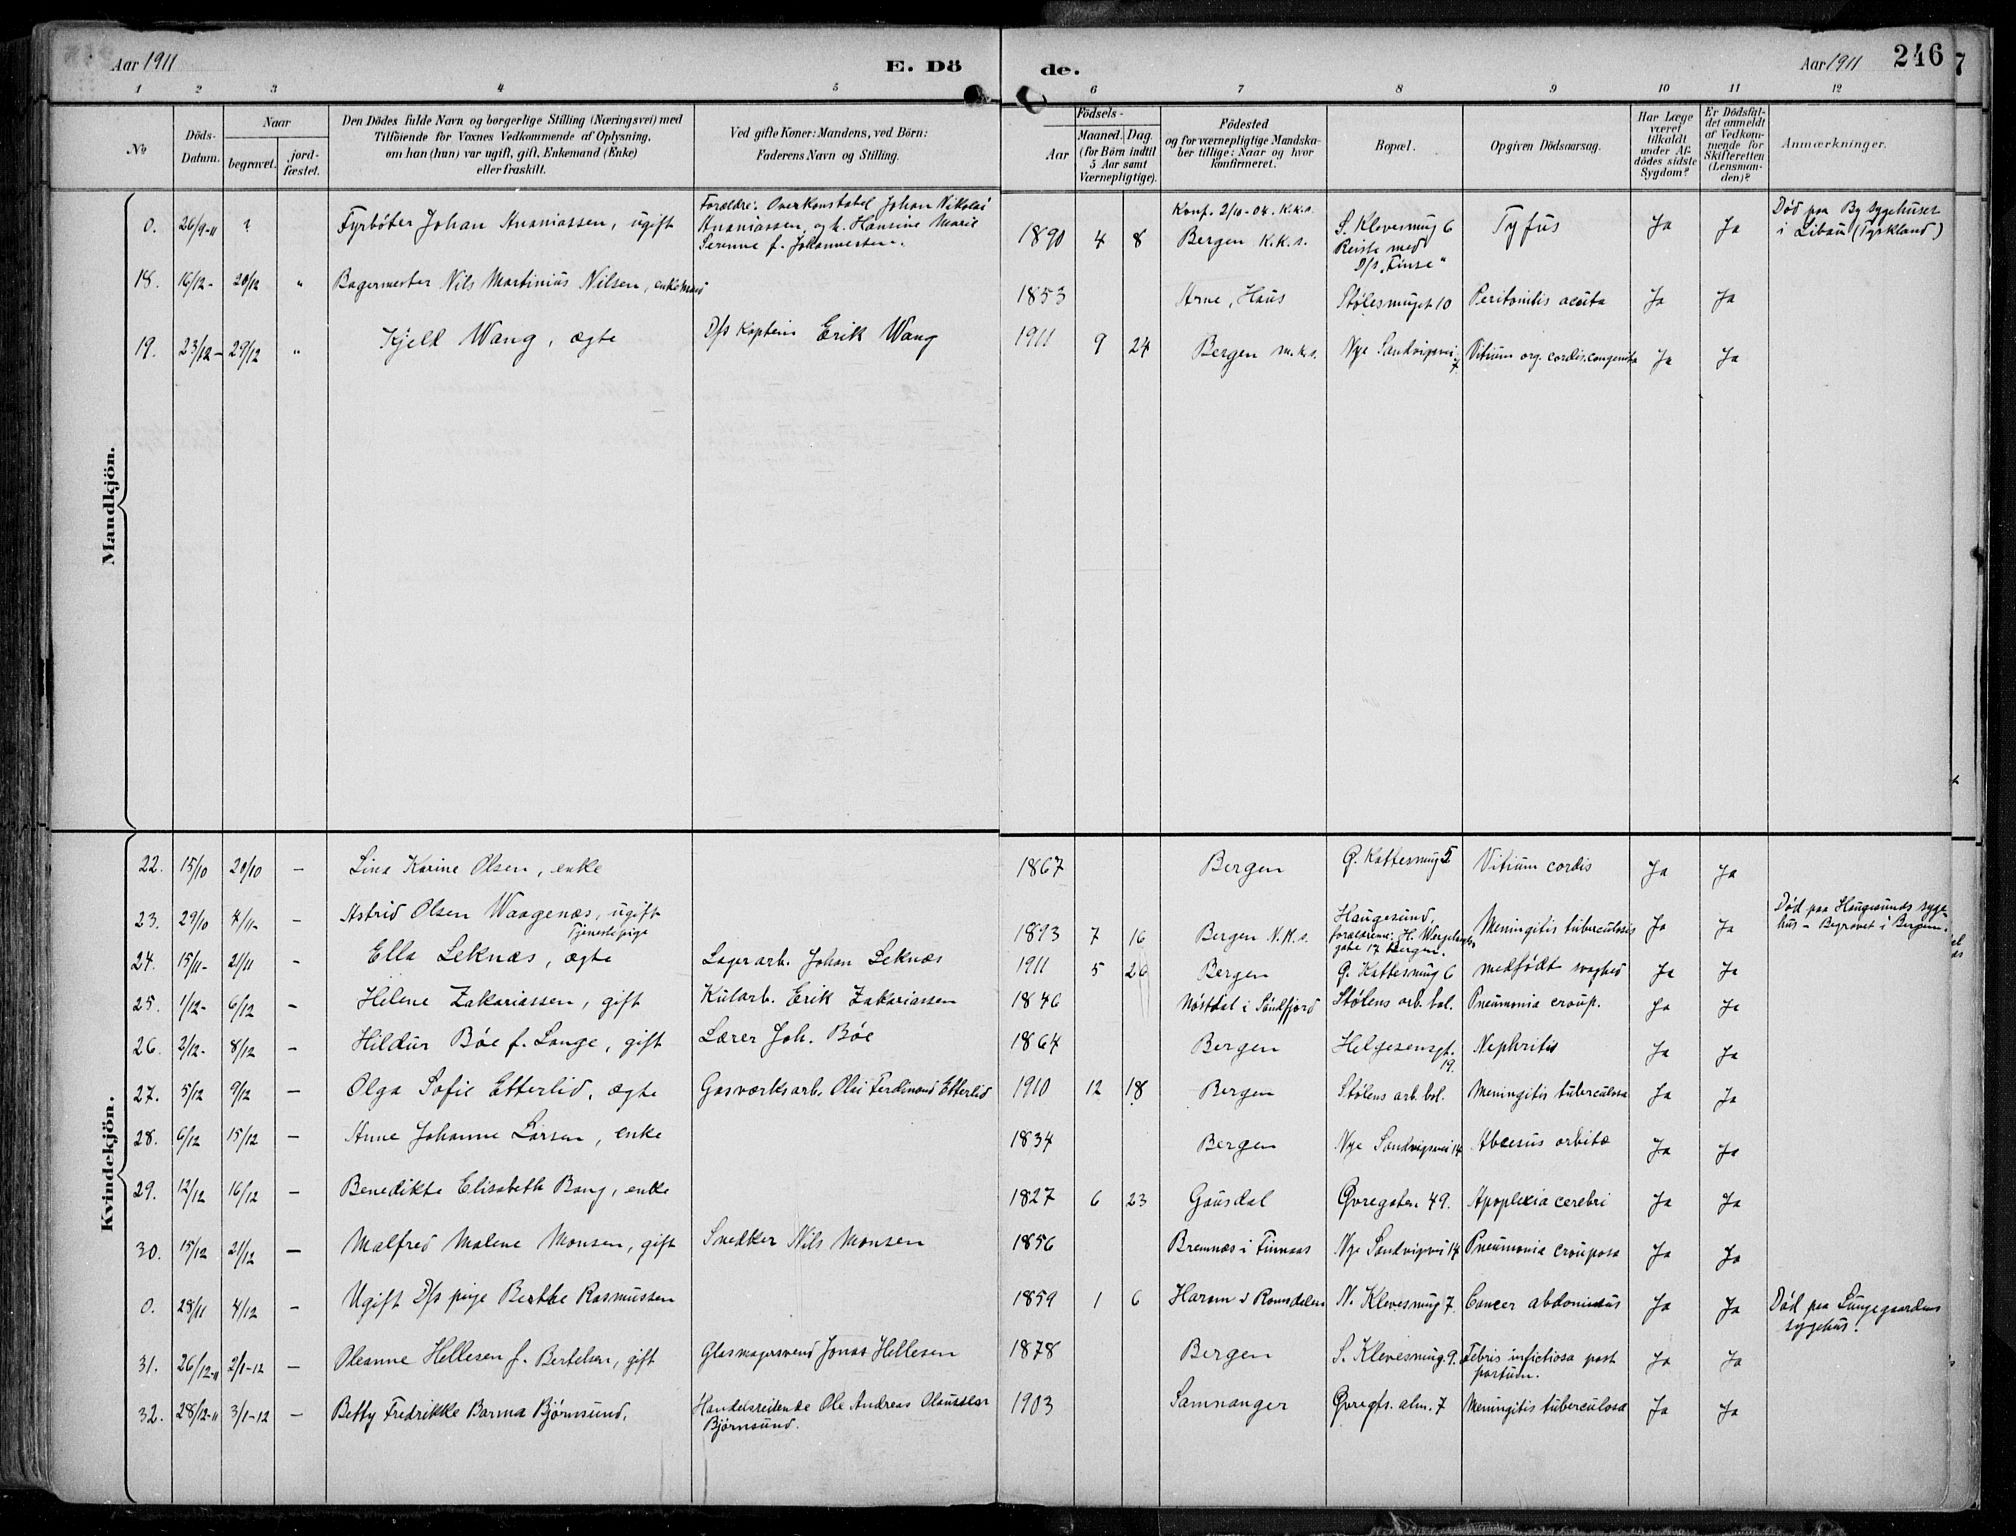 Aar 1911
E. Dö
de.
Aar 1911
246
7
1 2 3 4 5 6 7 8 9 10 11 12
No
Döds-
Datum.
Naar
begravet.
jord-
fæstet.
Den Dödes fulde Navn og borgerlige Stilling (Næringsvei) med
Tilföiende for Voxnes Vedkommende af Oplysning,
om han (hun) var ugift, gift, Enkemand (Enke)
eller fraskilt.
Ved gifte Koner: Mandens, ved Börn:
Faderens Navn og Stilling.
Födsels-
Aar
Maaned.
Dag.
(for Börn indtil
5 Aar samt
Værnepligtige).
Födested
og for værnepligtige Mandska-
ber tillige: Naar og hvor
konfirmeret.
Bopæl.
Opgiven Dödsaarsag.
Har Læge
været
tilkaldt
under Af-
dödes sidste
Sygdom?
Er Dödsfal-
det anmeldt
af Vedkom-
mende for
Skifteretten
(Lensman-
den)?
Anmærkninger.
Mandkjön.
0. 26/9-11 ? Fyrbøter Johan Ananiassen, ugift
Forældre: Overkonstabel Johan Nikolai
Ananiassen, og h. Hansine Marie
Serenne f. Johannessen.
1890 4 8
Konf. 2/10-04. K.k.s.
Bergen K.k.s.
S. Klevesmug 6
Reiste med
D/s "Finse"
Tyfus Ja Ja
Død paa By Sygehuset
i Libau (Tyskland)
18. 16/12- 20/12 " Bagermester Nils Martinius Nilsen, enkemand
1853 Arne, Haus Stølesmuget 10 Peritonitis acuta Ja Ja
19. 23/12- 29/12 " Kjell Wang, ægte D/s Kaptein Erik Wang
1911 9 24 Bergen m.k.s. Nye Sandvigsvei 7. Vitium org. cordis congenita Ja Ja
Kvindekjön.
22. 15/10 20/10 - Lina Karine Olsen, enke
1867 Bergen Ø. Kattesmug 5 Vitium cordis Ja Ja
23. 29/10 4/11- - Astrid Olsen Waagenæs, ugift
Tjenestepige
1893 7 16 Bergen N.K.s.
Haugesund,
forældrene: H. Wergelands
gate 17 Bergen.
Meningitis tuberculosis Ja Ja
Død paa Haugesunds syge-
hus - Begravet i Bergen.
24. 15/11- 21/11 - Ella Leknæs, ægte Lagerarb. Johan Leknæs
1911 5 26 Bergen Ø. Kattesmug 6 medfødt svaghed Ja Ja
25. 1/12- 6/12 - Helene Zakariassen, gift Kularb. Erik Zakariassen
1846 Nøstdal i Søndfjord Stølens arb. bol. Pneumonia croup. Ja Ja
26. 2/12- 8/12 - Hildur Bøe f. Lange, gift Lærer Joh. Bøe
1864 Bergen Helgesensgt. 19. Nephritis Ja Ja
27. 5/12 9/12 - Olga Sofie Etterlid, ægte Gasværksarb. Olai Ferdinand Etterlid
1910 12 18 Bergen Stølens arb. bol. Meningitis tuberculosa Ja Ja
28. 6/12 15/12 - Anne Johanne Larsen, enke
1834 Bergen Nye Sandvigsvei 14 Abcesus orbitæ Ja Ja
29. 12/12 16/12 - Benedikte Elisabeth Bang, enke
1827 6 23 Gausdal Øvregaten 49. Apoplexia cerebri Ja Ja
30. 15/12 21/12 - Malfred Malene Monsen, gift Snedker Nils Monsen
1856 Bremnæs i Finnaas Nye Sandvigsvei 14 Pneumonia crouposa Ja Ja
0. 28/11 4/12 - Ugift D/s pige Berthe Rasmussen
1859 1 6 Haram i Romsdalen N. Klevesmug 7. Cancer abdominus Ja Ja
Død paa Lungegaardens
sygehus.
31. 26/12-11 2/1-12 - Oleanne Hellesen f. Bertelsen, gift Glasmagersvend Jonas Hellesen
1878 Bergen S. Klevesmug. 9. Febris infictiosa post
partum. Ja Ja
32. 28/12-11 3/1-12 - Betty Fredrikke Barma Bjørnsund.
Handelsreisende Ole Andreas Olaussen
Bjørnsund.
1903 Samnanger Øvregts. alm. 7 Meningitis tuberculosa Ja Ja